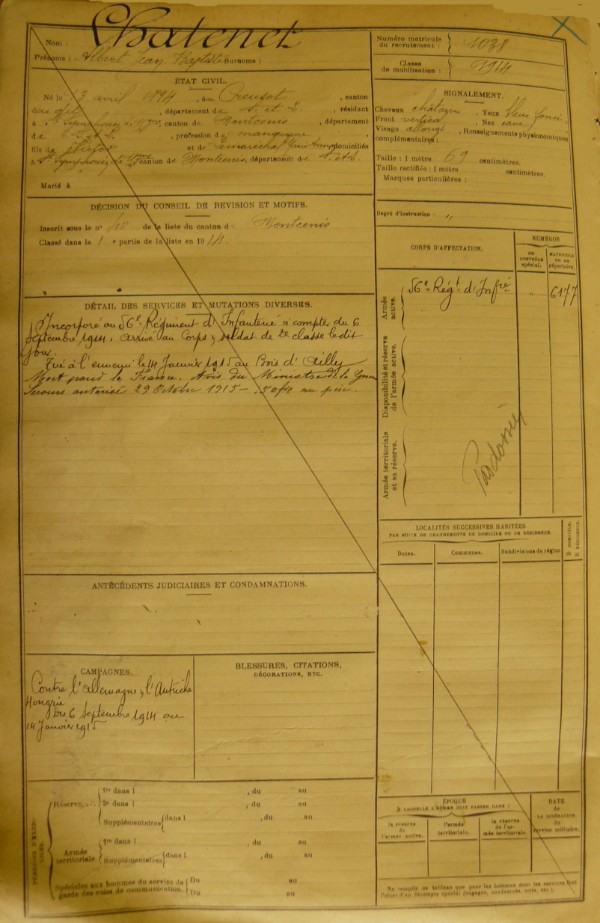 Nom : Chatenet
Prénoms : Albert Jean Baptiste Surnoms :
Numéro matricule du recrutement : 1038
Classe de mobilisation : 1914
ÉTAT CIVIL.
Né le 13 avril 1894, à Creusot, canton
dudit, département de S. et L., résidant
à St Symphorien de, canton de Montcenis, département
de S. et L., profession de manœuvre
fils de et de domiciliés
à St Symphorien de canton de Montcenis, département de S. et L.
Marié à
SIGNALEMENT.
Cheveux châtain Yeux bleu foncé
Front vertical Nez
Visage allongé Renseignements physionomiques
complémentaires :
Taille : 1 mètre 69 centimètres.
Taille rectifiée : 1 mètre centimètres.
Marques particulières :
Degré d'instruction : "
DÉCISION DU CONSEIL DE RÉVISION ET MOTIFS.
Inscrit sous le n° 40 de la liste du canton de Montcenis
Classé dans la 1e partie de la liste en 1914
DÉTAIL DES SERVICES ET MUTATIONS DIVERSES.
Incorporé au 56e Régiment d'Infanterie à compter du 6
Septembre 1914. Arrivé au Corps, soldat de 2e classe le dit
jour.
Tué à l'ennemi le 14 Janvier 1915 au Bois d'Ailly
Mort pour la France. Avis du Ministre de la Guerre
Secours autorisé 29 Octobre 1915 - 150f au père
CORPS D'AFFECTATION.
NUMÉROS
au contrôle spécial.
MATRICULE ou au répertoire.
Armée active.
56e Régt d'Infrie
6177
Disponibilité et réserve de l'armée active.
Armée territoriale et sa réserve.
LOCALITÉS SUCCESSIVES HABITÉES
PAR SUITE DE CHANGEMENTS DE DOMICILE OU DE RÉSIDENCE.
Dates.
Communes.
Subdivisions de région
D. domicile.
R. résidence.
ANTÉCÉDENTS JUDICIAIRES ET CONDAMNATIONS.
CAMPAGNES.
Contre l'Allemagne, l'Autriche
Hongrie
Du 6 Septembre 1914 au
14 Janvier 1915
BLESSURES, CITATIONS,
DÉCORATIONS, ETC.
Réserve.
1re dans l , du au
2e dans l , du au
Supplémentaires dans l , du au
Armée territoriale
1re dans l , du au
Supplémentaires dans l , du au
Spéciales aux hommes du service de
garde des voies de communication.
Du au
Du au
ÉPOQUE
À LAQUELLE L'HOMME DOIT PASSER DANS :
la réserve de l'armée active.
l'armée territoriale.
la réserve de l'armée territoriale.
DATE
de la libération du service militaire.